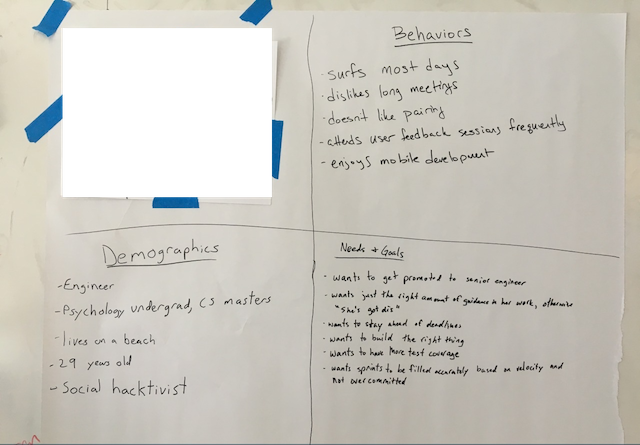 Behaviors
- surfs most days
- dislikes long meetings
- doesnt like pairing
- attends user feedback sessions frequently
- enjoys mobile development
Demographics
- Engineer
- Psychology undergrad, CS masters
- lives on a beach
- 29 years old
- Social hacktivist
Needs + Goals
- wants to get promoted to senior engineer
- wants just the right amount of guidance in her work, otherwise
"she's got dis"
- wants to stay ahead of deadlines
- wants to build the right thing
- wants to have more test coverage
- wants sprints to be filled accurately based on velocity and
not overcommitted